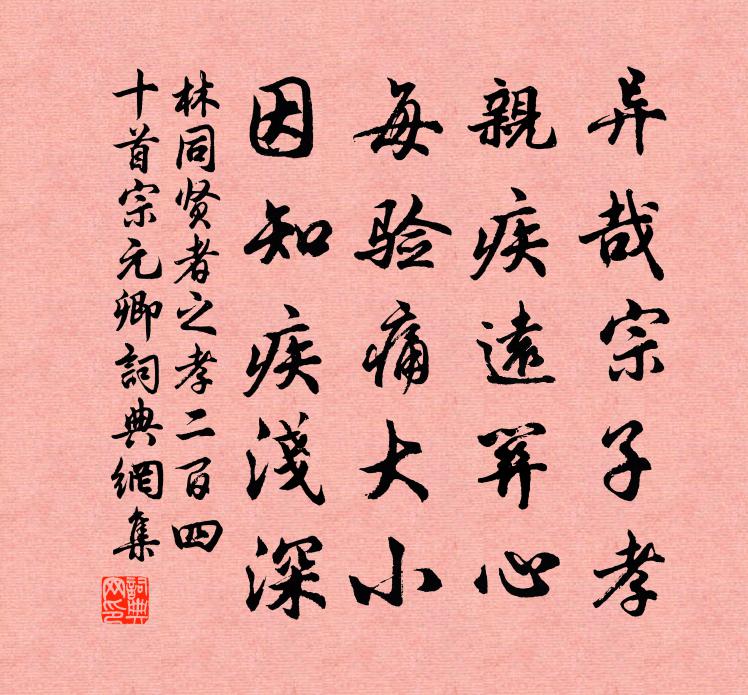 异哉宗子孝
親疾遠关心
每验痛大小
因知疾淺深
林同贤者之孝二百四
十首宗元卿詞典網集
詞典